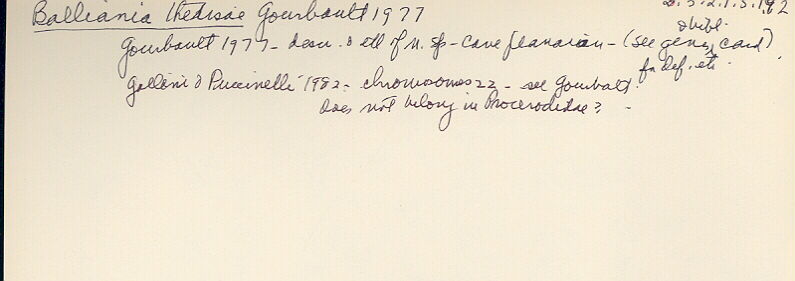 Balliania thedisae Gourbault 1977
Gourbault 1977 - descr. & ill of n. sp - cave planarian - (see genus card)
& bibl.
fn def. etc.
Galleni & Puccinelli 1982 - chromosomes 22 - see Gourbalt.
Does not belong in Procerodidae?